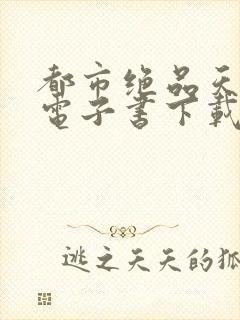 都市绝品天
電子書下載
逃之天天的狐